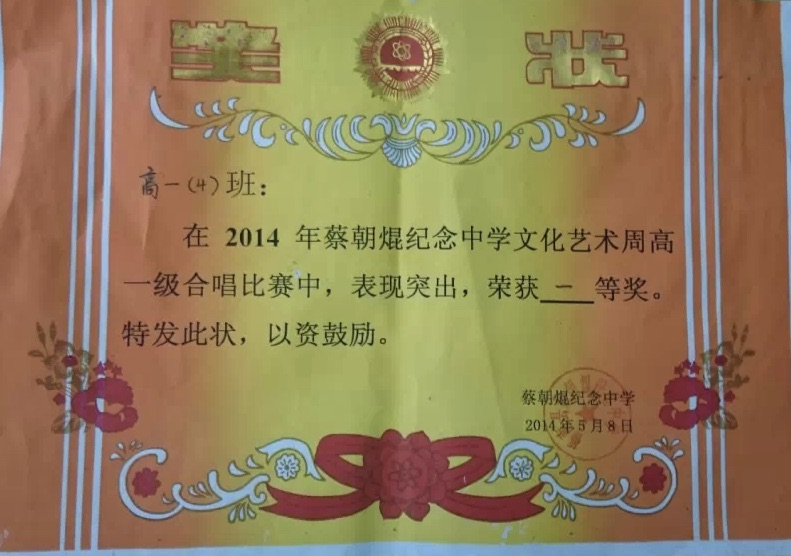 奖状
高一(4)班：
在 2014 年蔡朝焜纪念中学文化艺术周高
一级合唱比赛中，表现突出，荣获 一 等奖。
特发此状，以资鼓励。
蔡朝焜纪念中学
2014年5月8日